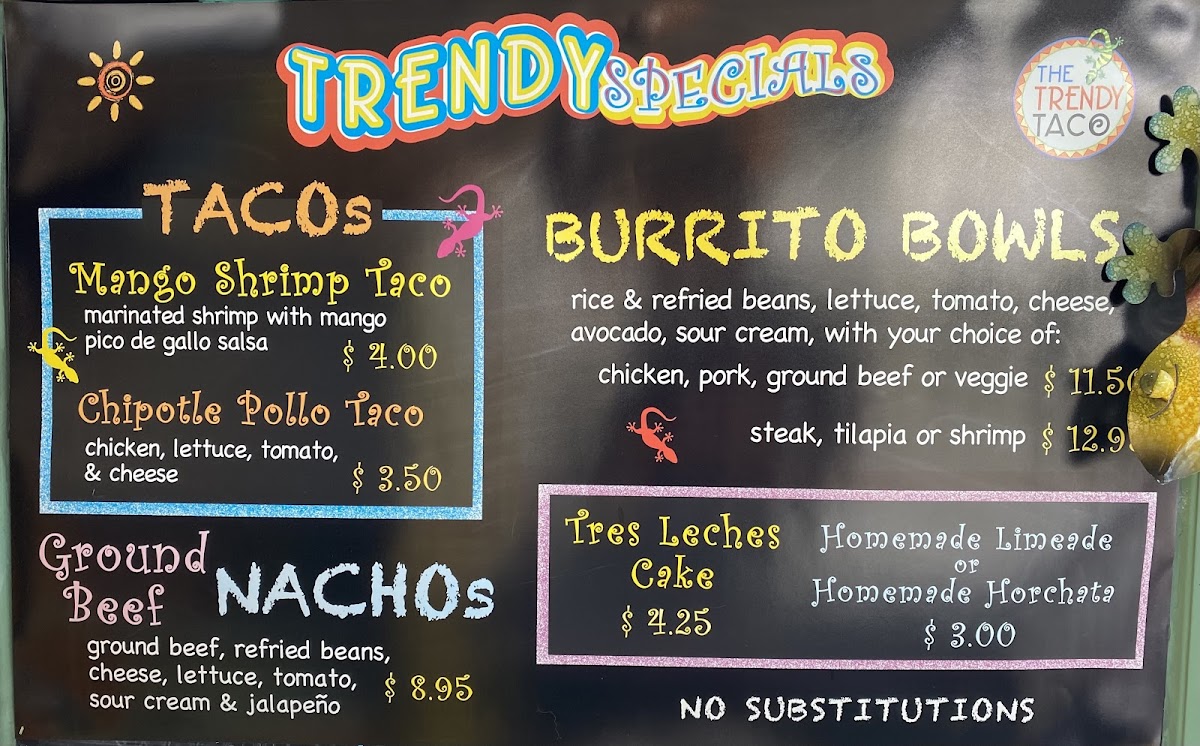 TRENDY SPECIALS
THE
TRENDY
TACO
TACOs
Mango Shrimp Taco
marinated shrimp with mango
pico de gallo salsa
$ 4.00
Chipotle Pollo Taco
chicken, lettuce, tomato,
& cheese
$ 3.50
Ground
Beef
NACHOs
ground beef, refried beans,
cheese, lettuce, tomato,
sour cream & jalapeño
$ 8.95
BURRITO BOWLS
rice & refried beans, lettuce, tomato, cheese,
avocado, sour cream, with your choice of:
chicken, pork, ground beef or veggie $ 11.50
steak, tilapia or shrimp $
Tres Leches
Cake
$ 4.25
Homemade Limeade
or
Homemade Horchata
$ 3.00
NO SUBSTITUTIONS